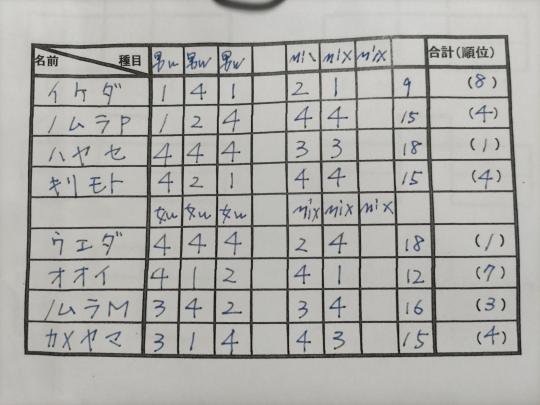 名前 種目 男W 男W 男W mix mix mix 合計(順位)
イケダ 1 4 1 2 1 9 (8)
ノムラP 1 2 4 4 4 15 (4)
ハヤセ 4 4 4 3 3 18 (1)
キリモト 4 2 1 4 4 15 (4)
女W 女W 女W mix mix mix
ウエダ 4 4 4 2 4 18 (1)
オオイ 4 1 2 4 1 12 (7)
ノムラM 3 4 2 3 4 16 (3)
カメヤマ 3 1 4 4 3 15 (4)